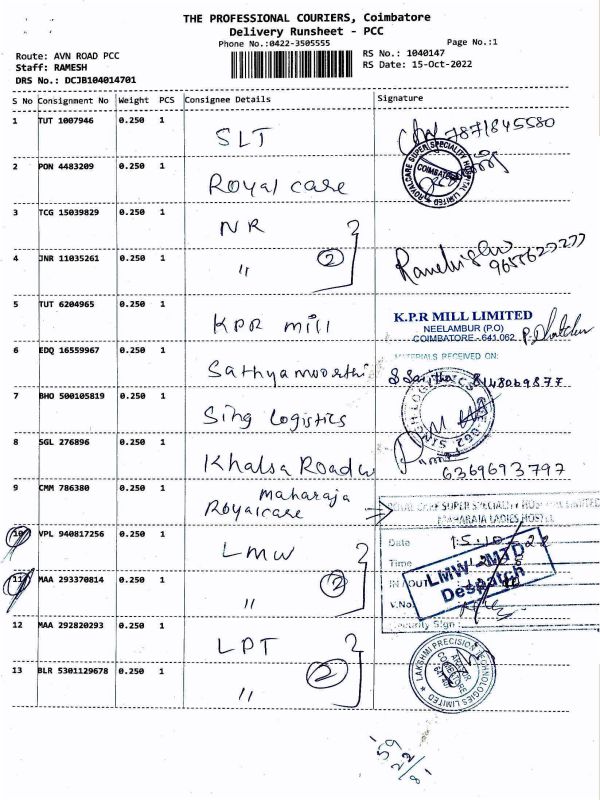 THE PROFESSIONAL COURIERS, Coimbatore
Delivery Runsheet - PCC
Phone No.:0422-3505555
Page No.:1
Route: AVN ROAD PCC
Staff: RAMESH
DRS No.: DCJB104014701
RS No.: 1040147
RS Date: 15-Oct-2022
S No Consignment No Weight PCS Consignee Details Signature
1 TUT 1007946 0.250 1 SLT 7871845580
2 PON 4483209 0.250 1 Royal care
ROYALCARE SUPER SPECIALITY HOSPITAL LIMITED
COIMBATORE
3 TCG 15039829 0.250 1 NR
4 JNR 11035261 0.250 1 " 2
5 TUT 6204965 0.250 1 KPR mill
K.P.R MILL LIMITED
NEELAMBUR (P.O)
COIMBATORE - 641 062.
MATERIALS RECEIVED ON:
6 EDQ 16559967 0.250 1 Sathyamoorthi 8148069877
7 BHO 500105819 0.250 1 Sing Logistics
8 SGL 276896 0.250 1 Khalsa Roadw 6369693797
9 CMM 786380 0.250 1 maharaja
Royalcare
ROYAL CARE SUPER SPECIALITY HOSPITAL LIMITED
MAHARAJA LADIES HOSTEL
10 VPL 940817256 0.250 1 LMW
Date 15.10.22
Time
11 MAA 293370814 0.250 1 " 2
IN / OUT
V.No.
Security Sign :
LMW - MTD
Despatch
12 MAA 292820293 0.250 1 LPT
13 BLR 5301129678 0.250 1 " 2
LAKSHMI PRECISION TECHNOLOGIES LIMITED
59
22